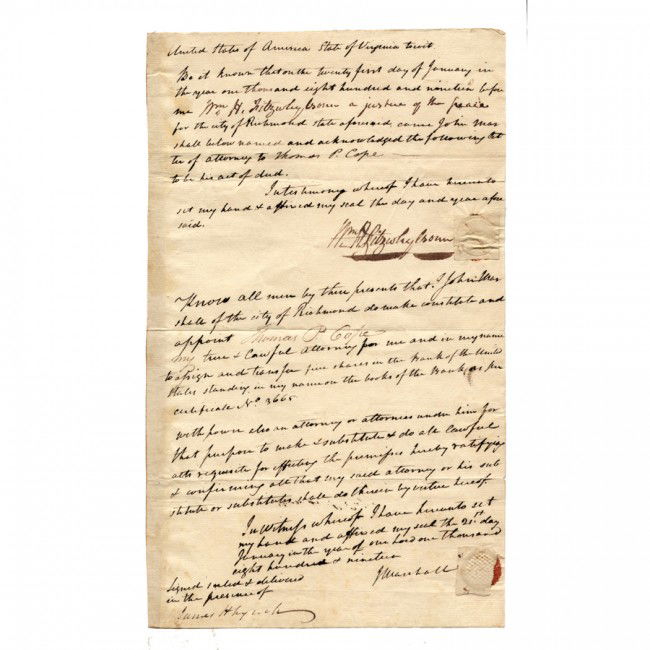 United States of America State of Virginia towit.
Be it known that on the twenty first day of January in
the year one thousand eight hundred and nineteen before
me Wm H. Fitzwhylsonn a justice of the peace
for the city of Richmond state aforesaid, came John Mar
shall below named and acknowledged the following let
ter of attorney to Thomas P. Cope
to be his act of deed.
In testimony whereof I have hereunto
set my hand & affixed my seal the day and year afore
said.
Wm H Fitzwhylsonn
Know all men by these presents that I John Mar
shall of the city of Richmond do make constitute and
appoint Thomas P. Cope
my true & Lawful attorney for me and in my name
to assign and transfer five shares in the Bank of the United
States standing in my name on the books of the Bank, as per
certificate No. 3665
with power also an attorney or attornies under him for
that purpose to make & substitute & do all lawful
acts requisite for effecting the premises hereby ratifying
& confirming all that my said attorney or his sub
stitute or substitutes shall do therein by virtue hereof.
In witness whereof I have hereunto set
my hand and affixed my seal the 21st day
January in the year of our Lord one thousand
eight hundred & nineteen
J Marshall
Signed sealed & delivered
in the presence of
James